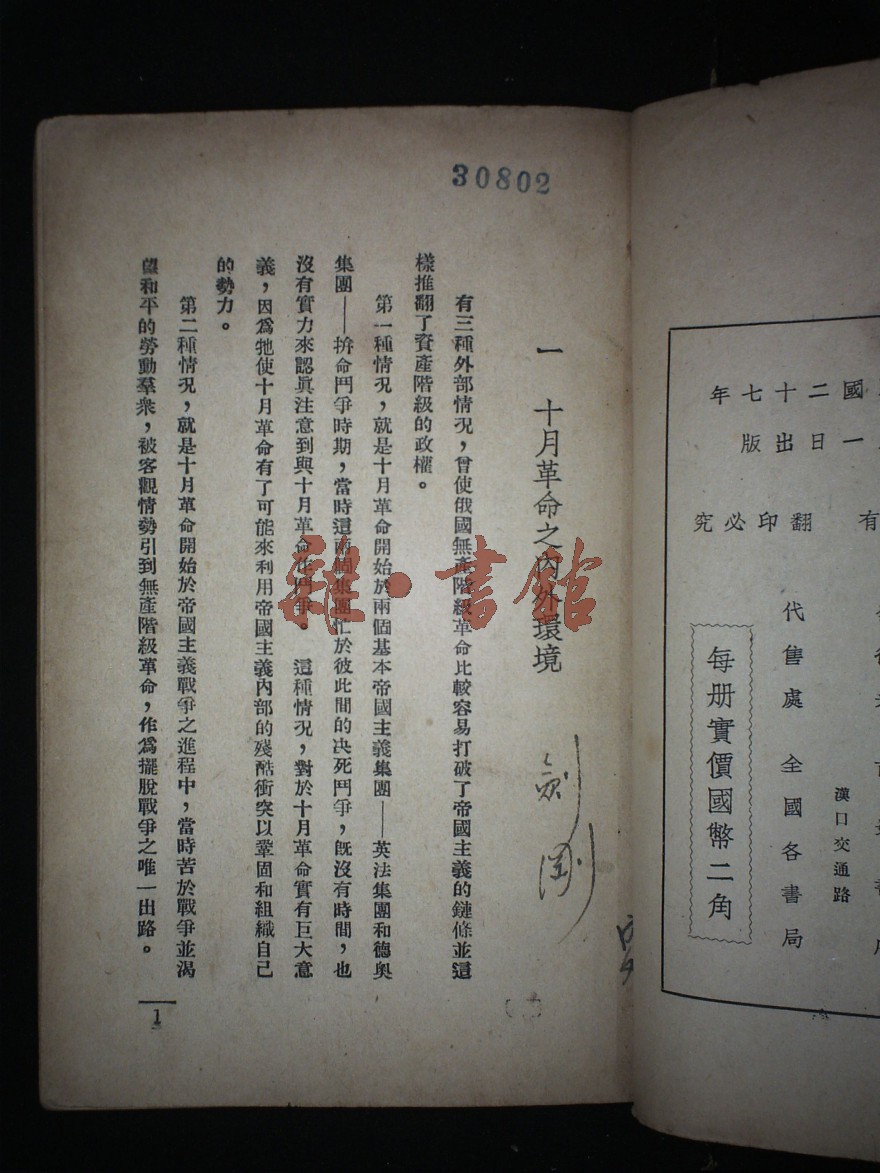 國二十七年
一日出版
有 翻印必究
代售處 全國各書局
漢口交通路
每册實價國幣二角
30802
一 十月革命之內外環境
劍剛
有三種外部情況，曾使俄國無產階級革命比較容易打破了帝國主義的鏈條並這
樣推翻了資產階級的政權。
第一種情況，就是十月革命開始於兩個基本帝國主義集團——英法集團和德奧
集團——拚命鬥爭時期，當時這兩個集團忙於彼此間的決死鬥爭，既沒有時間，也
沒有實力來認眞注意到與十月革命作鬥爭。 這種情況，對於十月革命實有巨大意
義，因爲牠使十月革命有了可能來利用帝國主義內部的殘酷衝突以鞏固和組織自己
的勢力。
第二種情況，就是十月革命開始於帝國主義戰爭之進程中，當時苦於戰爭並渴
望和平的勞動羣衆，被客觀情勢引到無產階級革命，作爲擺脫戰爭之唯一出路。
1
雜·書館